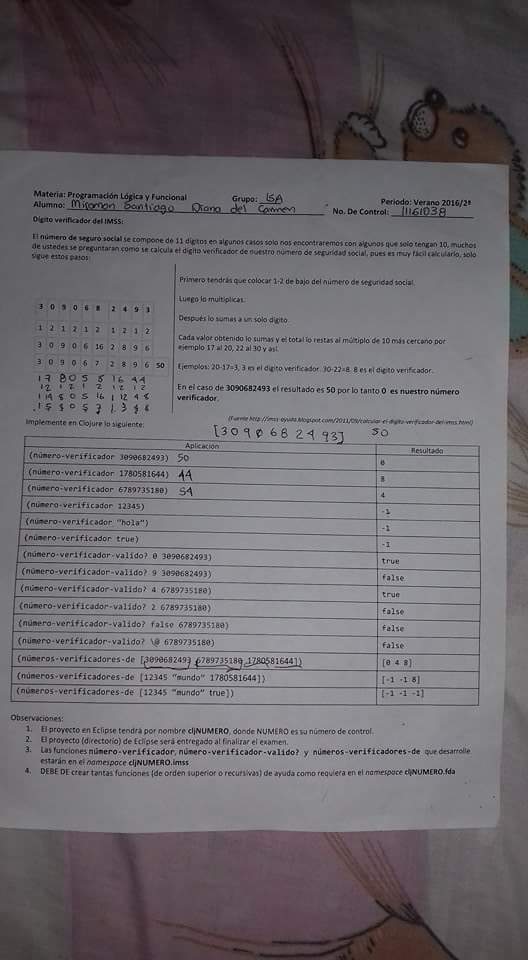 Materia: Programación Lógica y Funcional Grupo: ISA Periodo: Verano 2016/2ª
Alumno: Miramon Santiago Diana del Carmen No. De Control: 11161038
Dígito verificador del IMSS:
El número de seguro social se compone de 11 dígitos en algunos casos solo nos encontraremos con algunos que solo tengan 10, muchos
de ustedes se preguntaran como se calcula el dígito verificador de nuestro número de seguridad social, pues es muy fácil calcularlo, solo
sigue estos pasos:
Primero tendrás que colocar 1-2 de bajo del número de seguridad social.
Luego lo multiplicas.
Después lo sumas a un solo dígito.
Cada valor obtenido lo sumas y el total lo restas al múltiplo de 10 más cercano por
ejemplo 17 al 20, 22 al 30 y así.
Ejemplos: 20-17=3, 3 es el dígito verificador. 30-22=8. 8 es el dígito verificador.
En el caso de 3090682493 el resultado es 50 por lo tanto 0 es nuestro número
verificador.
3 0 9 0 6 8 2 4 9 3
1 2 1 2 1 2 1 2 1 2
3 0 9 0 6 16 2 8 9 6
3 0 9 0 6 7 2 8 9 6 50
17 8 0 5 8 16 4 4
12 1 2 1 2 1 2 1 2
1 14 8 0 5 16 1 12 4 8
1 5 8 0 5 7 1 3 4 8
(Fuente http://imss-ayuda.blogspot.com/2011/09/calcular-el-digito-verificador-del-imss.html)
Implemente en Clojure lo siguiente:
[3 0 9 0 6 8 2 4 9 3] 50
Aplicación Resultado
(número-verificador 3090682493) 50 0
(número-verificador 1780581644) 44 8
(número-verificador 6789735180) 54 4
(número-verificador 12345) -1
(número-verificador "hola") -1
(número-verificador true) -1
(número-verificador-valido? 0 3090682493) true
(número-verificador-valido? 9 3090682493) false
(número-verificador-valido? 4 6789735180) true
(número-verificador-valido? 2 6789735180) false
(número-verificador-valido? false 6789735180) false
(número-verificador-valido? \@ 6789735180) false
(números-verificadores-de [3090682493 6789735180 1780581644]) [0 4 8]
(números-verificadores-de [12345 "mundo" 1780581644]) [-1 -1 8]
(números-verificadores-de [12345 "mundo" true]) [-1 -1 -1]
Observaciones:
1. El proyecto en Eclipse tendrá por nombre cljNUMERO, donde NUMERO es su número de control.
2. El proyecto (directorio) de Eclipse será entregado al finalizar el examen.
3. Las funciones número-verificador, número-verificador-valido? y números-verificadores-de que desarrolle
estarán en el namespace cljNUMERO.imss
4. DEBE DE crear tantas funciones (de orden superior o recursivas) de ayuda como requiera en el namespace cljNUMERO.fda